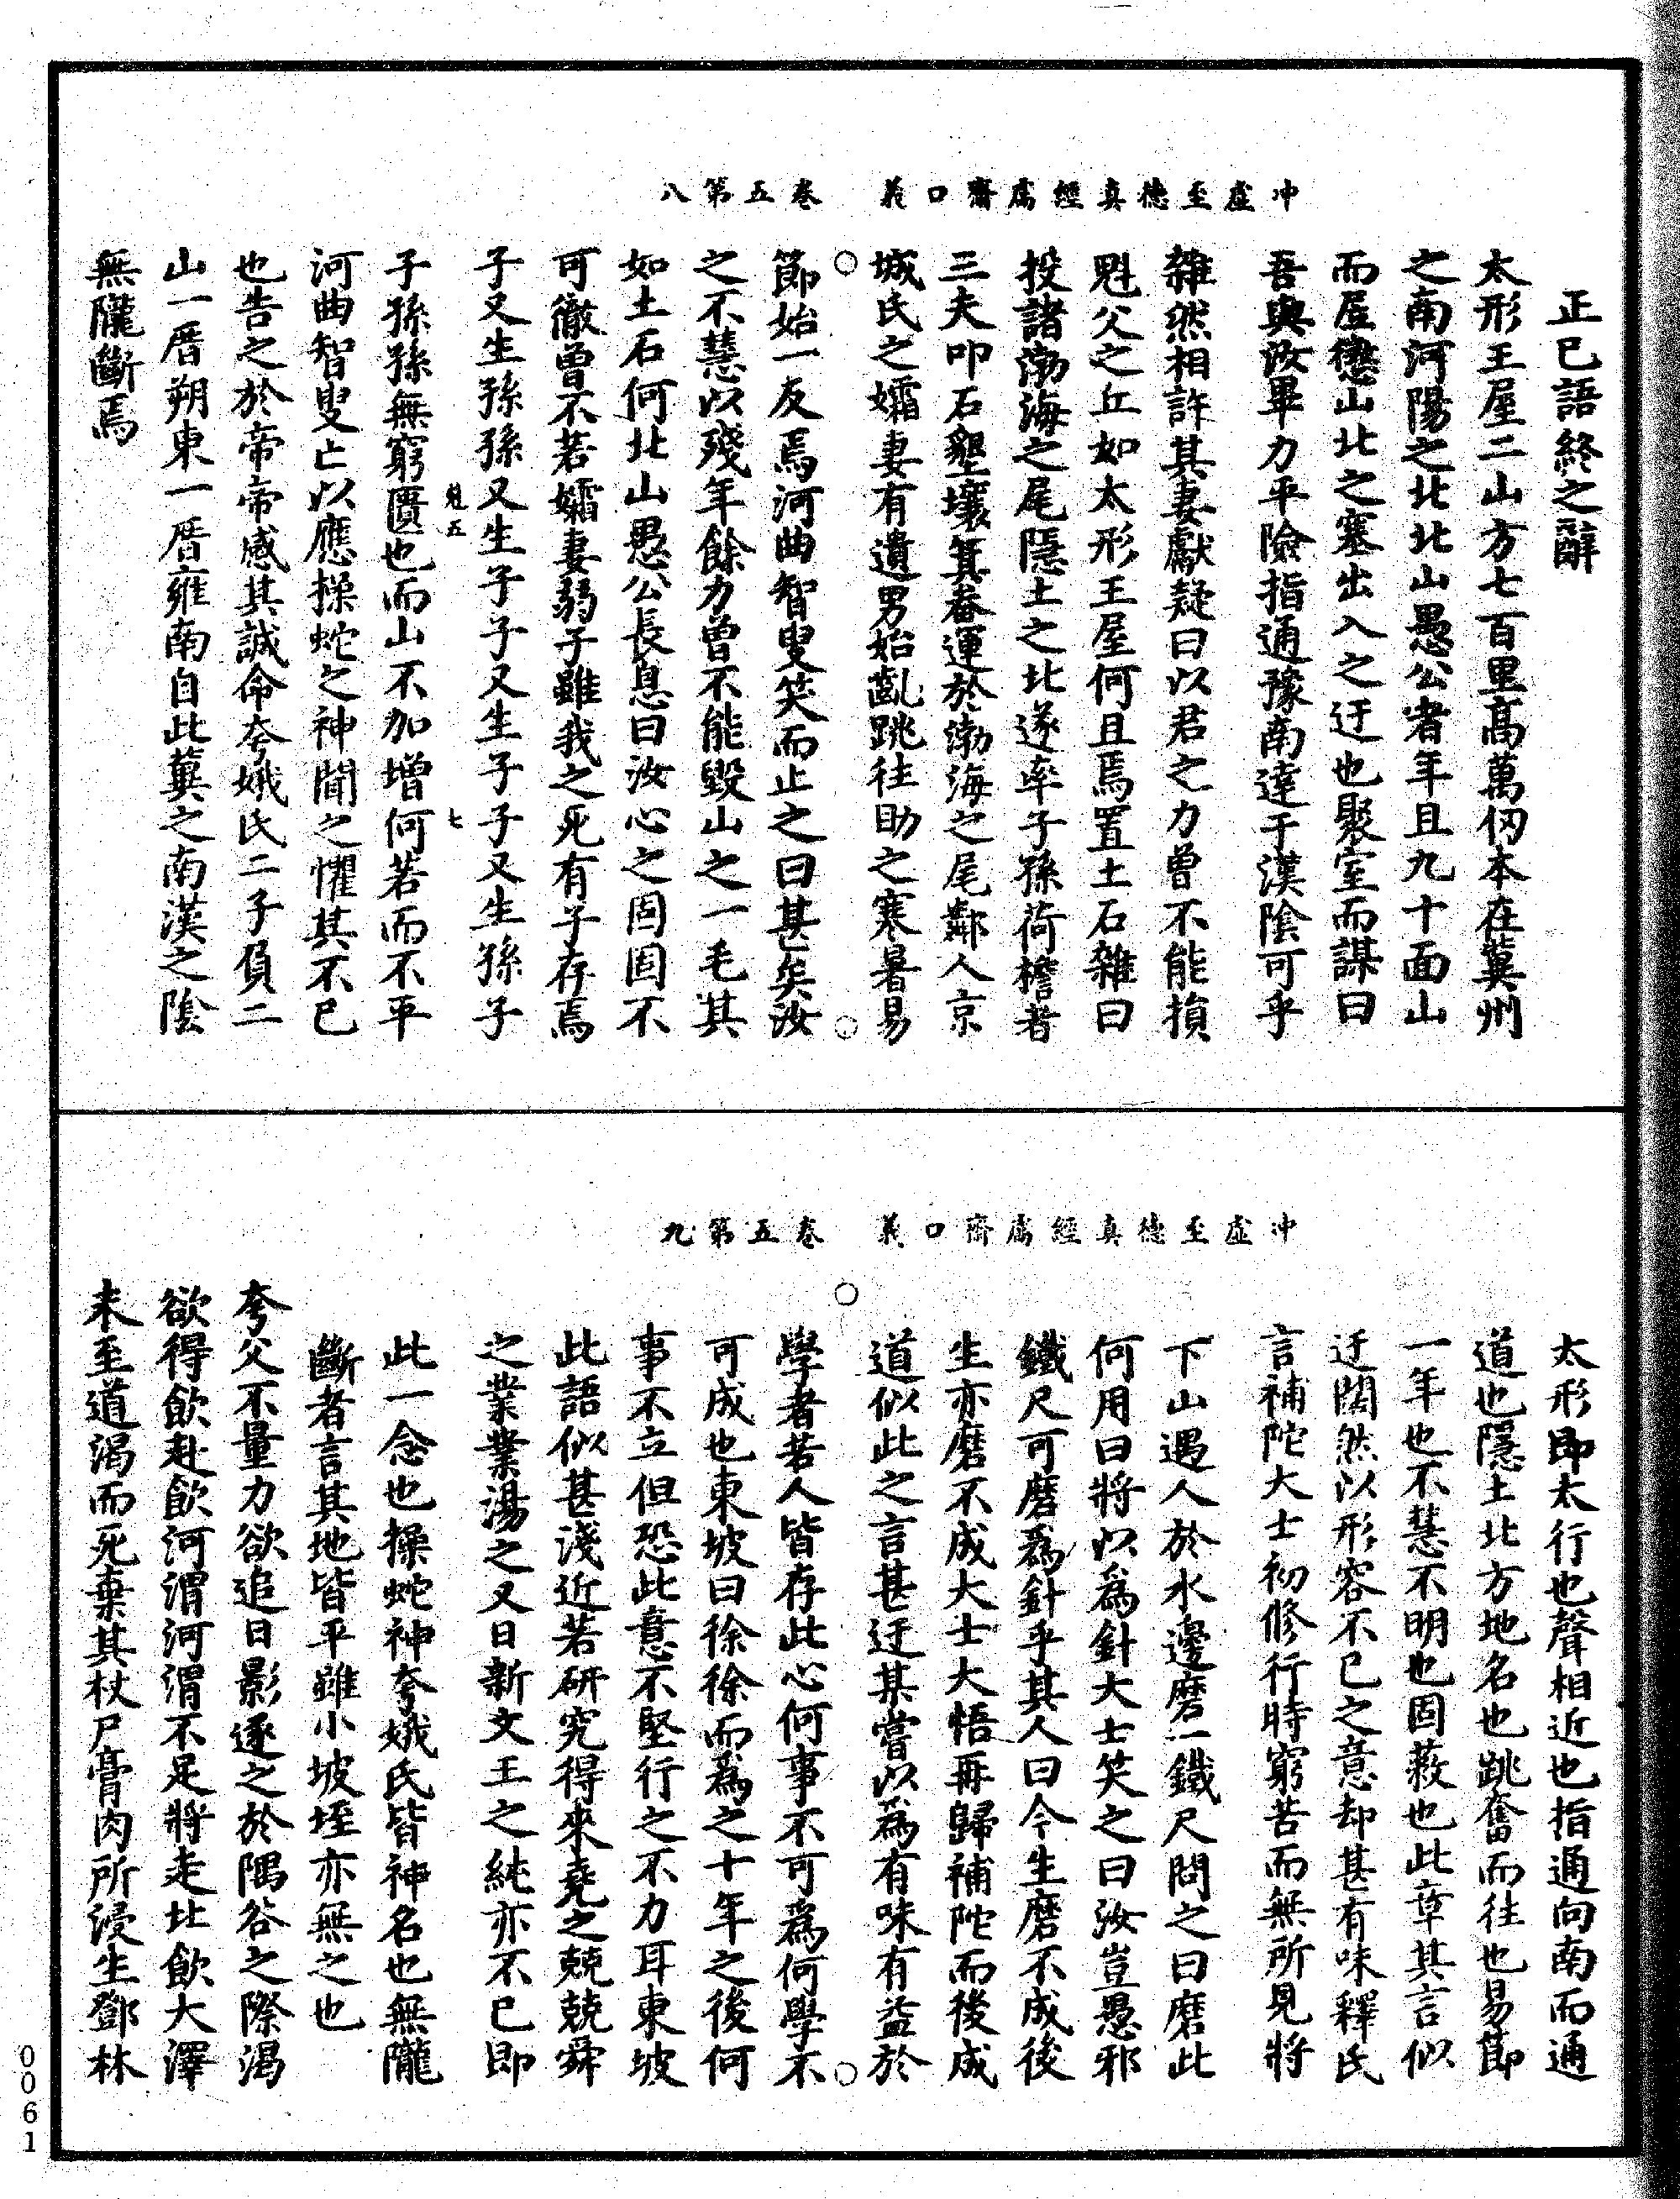 冲虛至德真經鬳齋口義　卷五第八
正已語終之辭
太形王屋二山方七百里高萬仞本在冀州
之南河陽之北北山愚公者年且九十面山
而居懲山北之塞出入之迂也聚室而謀曰
吾與汝畢力平險指通豫南達于漢陰可乎
雜然相許其妻獻疑曰以君之力曾不能損
魁父之丘如太形王屋何且焉置土石雜曰
投諸渤海之尾隱土之北遂率子孫荷檐者
三夫叩石墾壤箕畚運於渤海之尾鄰人京
城氏之孀妻有遺男始齓跳往助之寒暑易
節始一友焉河曲智叟笑而止之曰甚矣汝
之不慧以殘年餘力曾不能毀山之一毛其
如土石何北山愚公長息曰汝心之固固不
可徹曾不若孀妻弱子雖我之死有子存焉
子又生孫孫又生子子又生子子又生孫子
魁五　七
子孫孫無窮匱也而山不加增何若而不平
河曲智叟亡以應操蛇之神聞之懼其不已
也告之於帝帝感其誠命夸娥氏二子負二
山一厝朔東一厝雍南自此冀之南漢之陰
無隴斷焉
冲虛至德真經鬳齋口義　卷五第九
太形即太行也聲相近也指通向南而通
道也隱土北方地名也跳奮而往也易節
一年也不慧不明也固蔽也此章其言似
迂闊然以形容不已之意却甚有味釋氏
言補陀大士初修行時窮苦而無所見將
下山遇人於水邊磨一鐵尺問之曰磨此
何用曰將以為針大士笑之曰汝豈愚邪
鐵尺可磨為針乎其人曰今生磨不成後
生亦磨不成大士大悟再歸補陀而後成
道似此之言甚迂某嘗以為有味有益於
學者若人皆存此心何事不可為何學不
可成也東坡曰徐徐而為之十年之後何
事不立但恐此意不堅行之不力耳東坡
此語似甚淺近若研究得來堯之兢兢舜
之業業湯之又日新文王之純亦不已即
此一念也操蛇神夸娥氏皆神名也無隴
斷者言其地皆平雖小坡垤亦無之也
夸父不量力欲追日影逐之於隅谷之際渴
欲得飲赴飲河渭河渭不足將走北飲大澤
未至道渴而死棄其杖尸膏肉所浸生鄧林
0061